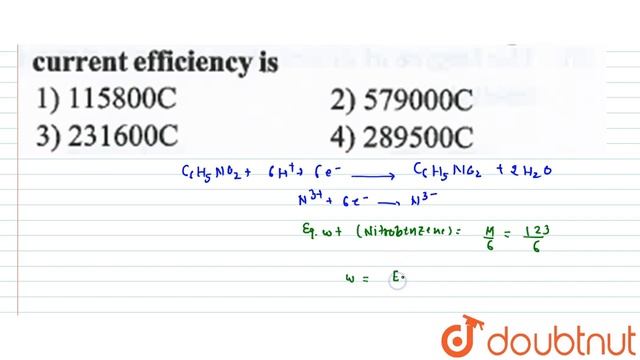 current efficiency is
1) 115800C 2) 579000C
3) 231600C 4) 289500C
C6H5NO2 + 6H+ + 6e- → C6H5NG2 + 2H2O
N3+ + 6e- → N3-
Eq. wt (Nitrobenzene) = M/6 = 123/6
w = E.
doubtnut